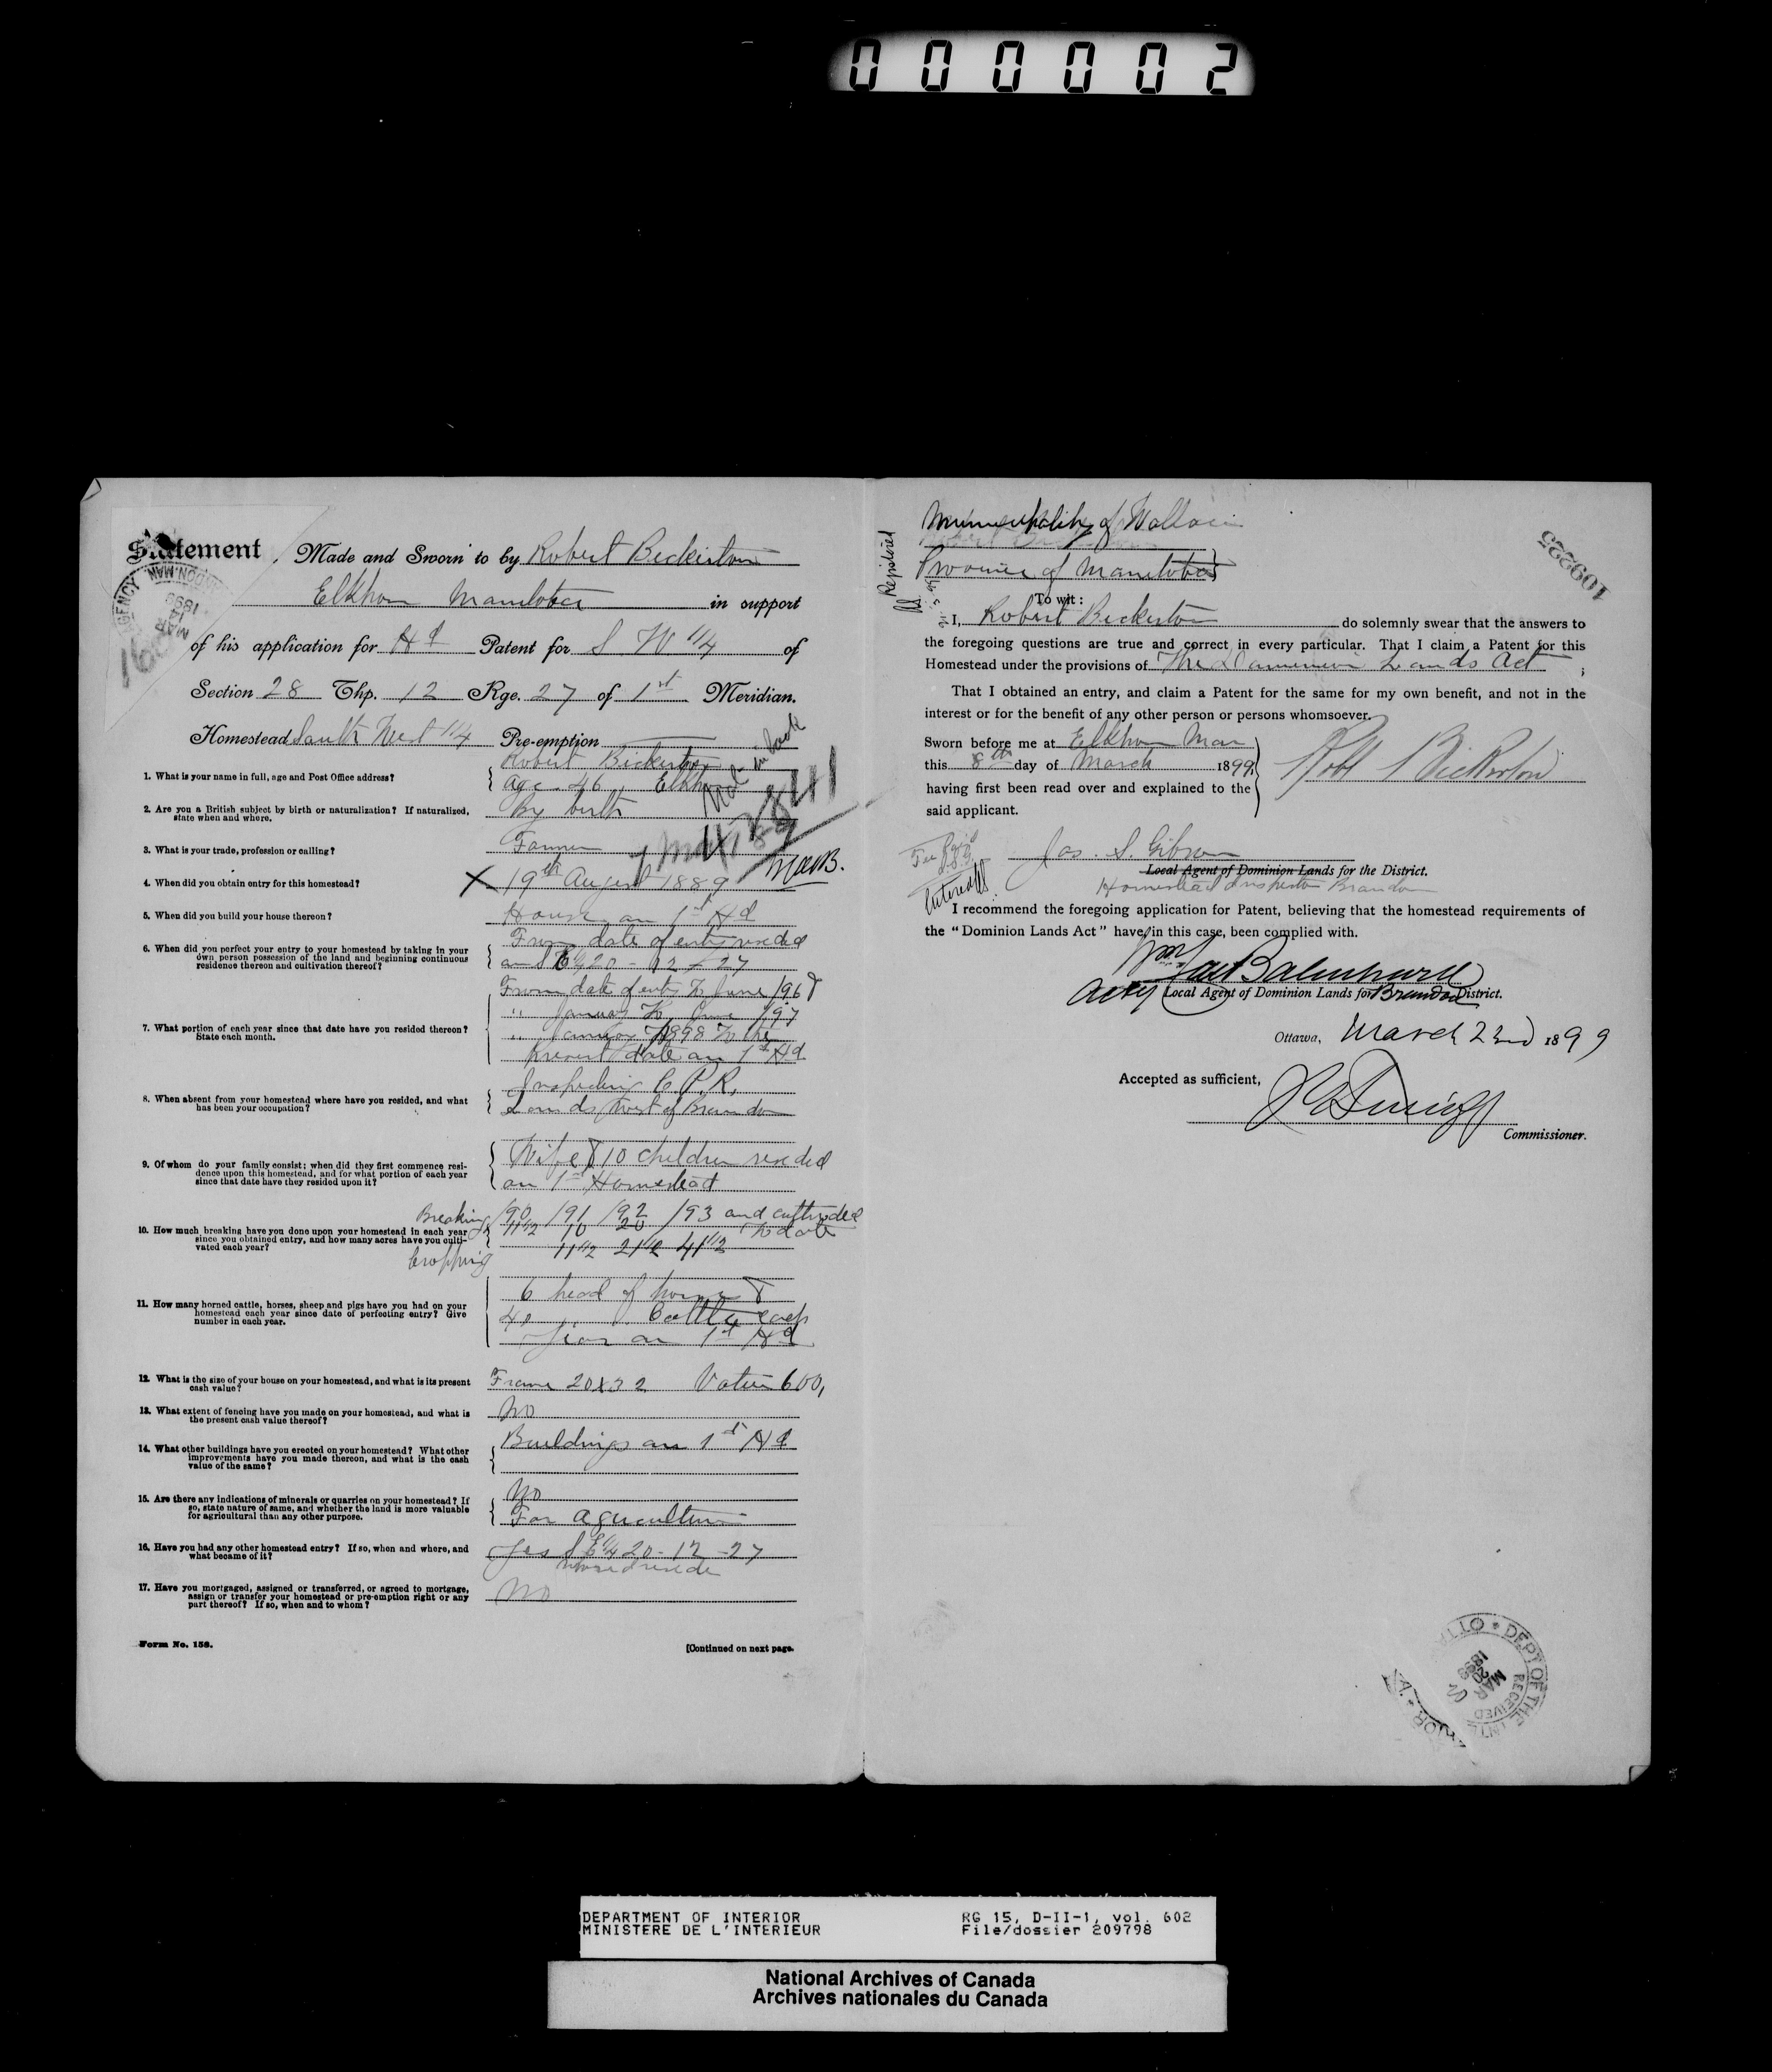 000002
Statement Made and Sworn to by Robert Bickerton
Elkhorn Manitoba in support
of his application for Hd Patent for S W 1/4 of
Section 28 Thp. 12 Rge. 27 of 1st Meridian.
Homestead South West 1/4 Pre-emption
AGENCY
MAR 14 1899
Not in book
1. What is your name in full, age and Post Office address?
Robert Bickerton
age 46, Elkhorn
2. Are you a British subject by birth or naturalization? If naturalized,
state when and where.
By birth
3. What is your trade, profession or calling?
Farmer
4. When did you obtain entry for this homestead?
X 19th August 1889
5. When did you build your house thereon?
House on 1st Hd
6. When did you perfect your entry to your homestead by taking in your
own person possession of the land and beginning continuous
residence thereon and cultivation thereof?
From date of entry resided
on S E 1/4 20 - 12 - 27
7. What portion of each year since that date have you resided thereon?
State each month.
From date of entry to June /96 &
" January to June /97
" January 1898 to the
present date on 1st Hd
8. When absent from your homestead where have you resided, and what
has been your occupation?
Inspecting C. P. R.
Lands West of Brandon
9. Of whom do your family consist; when did they first commence resi-
dence upon this homestead, and for what portion of each year
since that date have they resided upon it?
Wife & 10 children resided
on 1st Homestead
10. How much breaking have you done upon your homestead in each year
since you obtained entry, and how many acres have you culti-
vated each year?
Breaking
/90 /91 /92 /93 and
11 1/2 10 20 to date
Cropping
11 1/2 21 1/2 41 1/2
11. How many horned cattle, horses, sheep and pigs have you had on your
homestead each year since date of perfecting entry? Give
number in each year.
6 head of horses &
40 Cattle each
year on 1st Hd
12. What is the size of your house on your homestead, and what is its present
cash value?
Frame 20x32 Value 600,
13. What extent of fencing have you made on your homestead, and what is
the present cash value thereof?
No
14. What other buildings have you erected on your homestead? What other
improvements have you made thereon, and what is the cash
value of the same?
Buildings on 1st Hd
15. Are there any indications of minerals or quarries on your homestead? If
so, state nature of same, and whether the land is more valuable
for agricultural than any other purpose.
No
For agriculture
16. Have you had any other homestead entry? If so, when and where, and
what became of it?
Yes S E 1/4 20 - 12 - 27
17. Have you mortgaged, assigned or transferred, or agreed to mortgage,
assign or transfer your homestead or pre-emption right or any
part thereof? If so, when and to whom?
No
Form No. 158.
[Continued on next page.
109225
Registered
Municipality of Wallace
Province of Manitoba
To wit:
I, Robert Bickerton do solemnly swear that the answers to
the foregoing questions are true and correct in every particular. That I claim a Patent for this
Homestead under the provisions of The Dominion Lands Act ;
That I obtained an entry, and claim a Patent for the same for my own benefit, and not in the
interest or for the benefit of any other person or persons whomsoever.
Sworn before me at Elkhorn Man
this 8th day of March 1899
having first been read over and explained to the
said applicant.
Robt Bickerton
Fee Paid
Jas. S. Gibson
Local Agent of Dominion Lands for the District.
Homestead Inspector Brandon
I recommend the foregoing application for Patent, believing that the homestead requirements of
the "Dominion Lands Act" have, in this case, been complied with.
Actg Local Agent of Dominion Lands for Brandon District.
Ottawa, March 22nd 1899
Accepted as sufficient,
Commissioner.
DEPT OF THE INTERIOR OTTAWA
RECEIVED
MAR 20 1899
DEPARTMENT OF INTERIOR RG 15, D-II-1, vol. 602
MINISTERE DE L'INTERIEUR File/dossier 209798
National Archives of Canada
Archives nationales du Canada